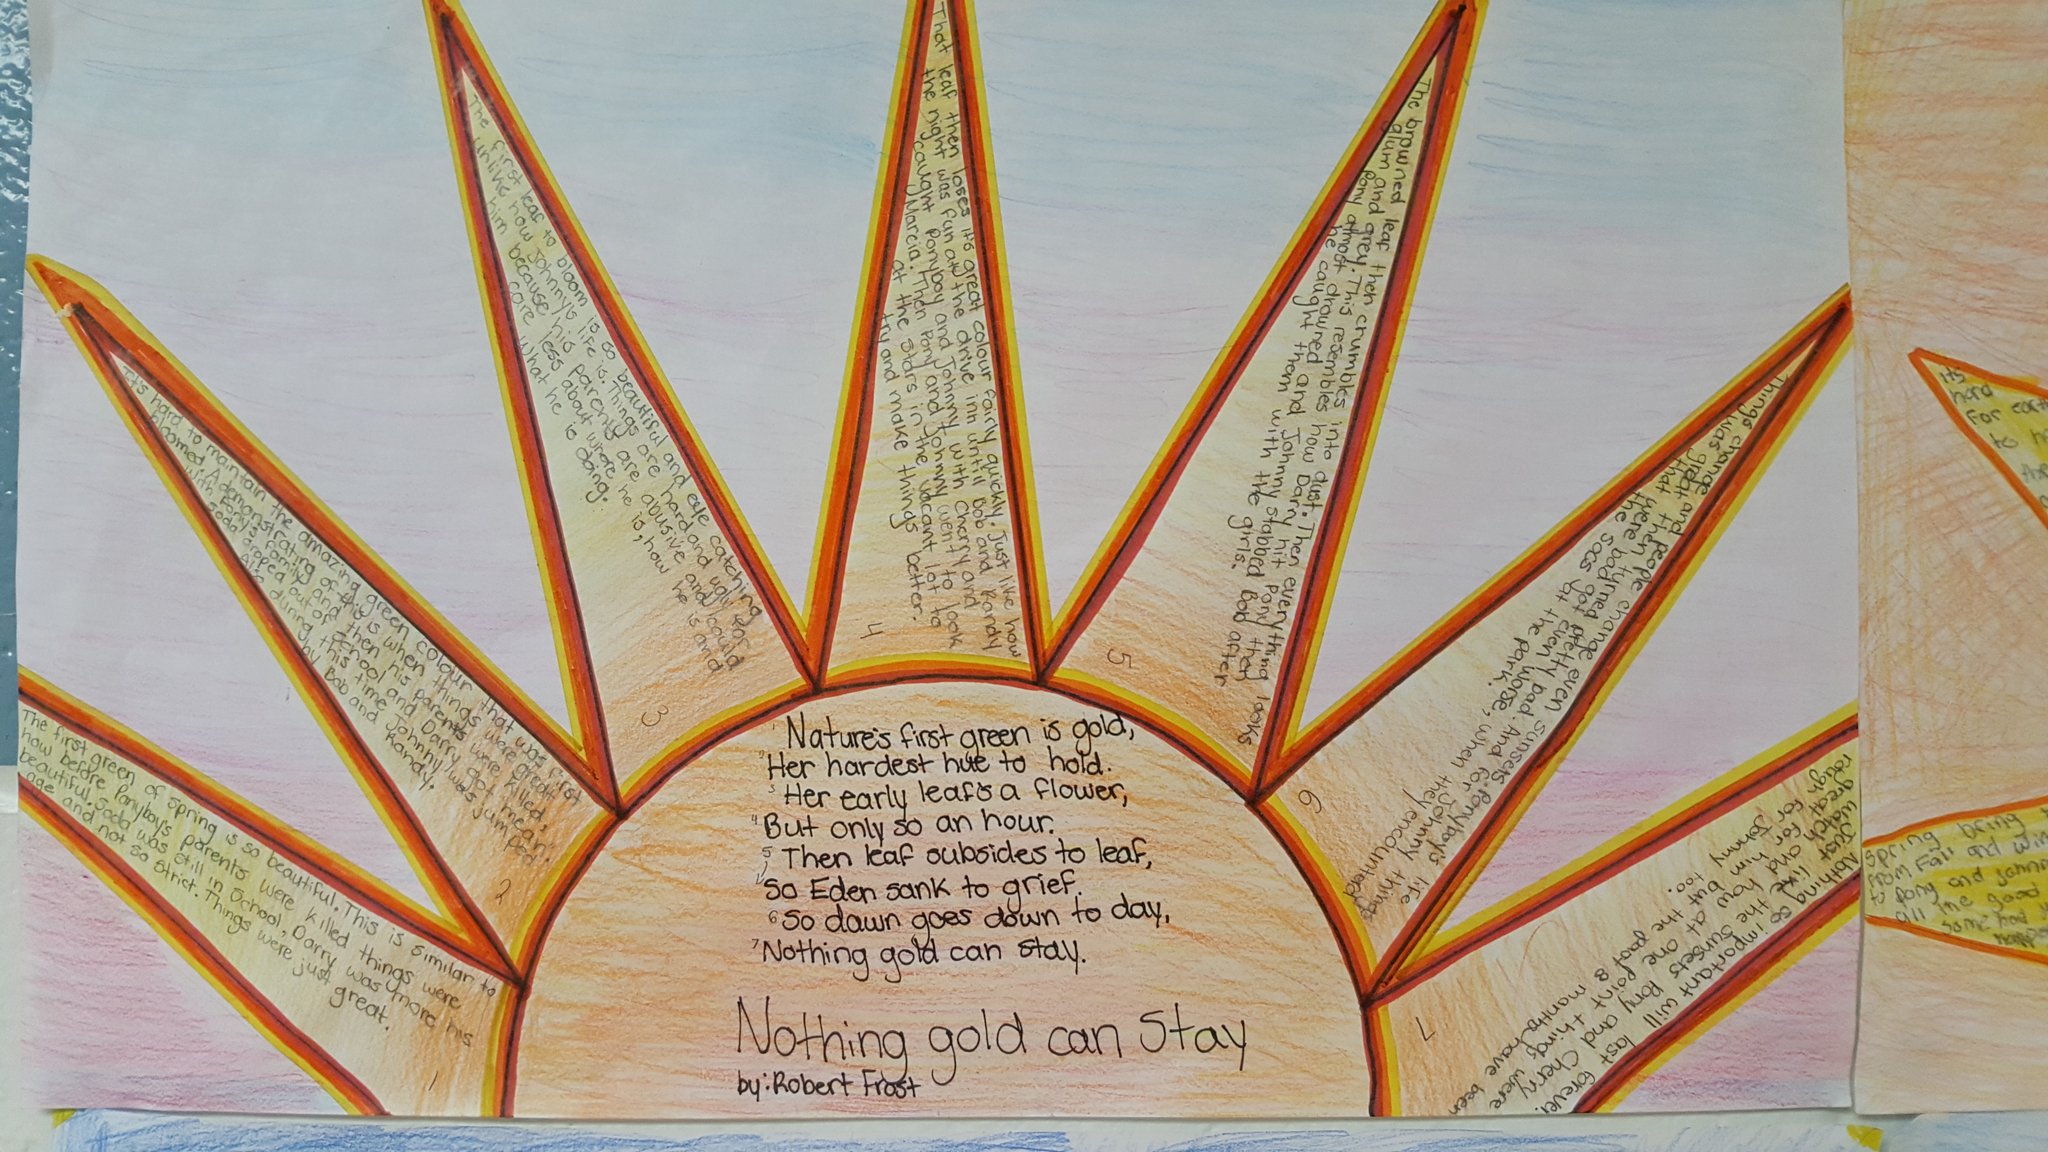 The first green of spring is so beautiful. This is similar to
how before Ponyboy's parents were killed things were
beautiful. Soda was still in School, Darry was more his
age and not so strict. Things were just great.
1
It's hard to maintain the amazing green colour that was first
bloomed. A demonstrating of this is when things were great
with Pony's family and then his parents were killed.
Soda dropped out of school and Darry got mean.
Also during this time Johnny was jumped
by Bob and Randy.
2
The first leaf to bloom is so beautiful and eye catching
unlike how Johnny's life is. Things are hard and ugly for
him because his parents are abusive and could
care less about where he is, how he is and
what he is doing.
3
That leaf then loses it's great colour fairly quickly. Just like how
the night was fun at the drive inn untill Bob and Randy
caught Ponyboy and Johnny with Cherry and
Marcia. Then Pony and Johnny went to look
at the stars in the vacant lot to
try and make things better.
4
The browned leaf then crumbles into dust. Then everything looks
glum and grey. This resembles how Darry hit Pony then
Pony almost drowned and Johnny stabbed Bob after
he caught them with the girls.
5
Things change and people change even sunsets. Ponyboy's life
was great and then turned pretty bad. And for Johnny things
that were bad got even worse, when they encountered
the socs at the park.
6
Nothing so important will last forever.
Just like the sunsets Pony and Cherry were
watch and how at one point things
great for him but the past 8 months have been
rough for Johnny too.
7
1 Nature's first green is gold,
2 Her hardest hue to hold.
3 Her early leaf's a flower,
4 But only so an hour.
5 Then leaf subsides to leaf,
So Eden sank to grief.
6 So dawn goes down to day,
7 Nothing gold can stay.
Nothing gold can stay
by: Robert Frost
It's
hard
for earth
to
the
Spring bring
from Fall and Win
Pony and Johnn
all the good
some bad
happen